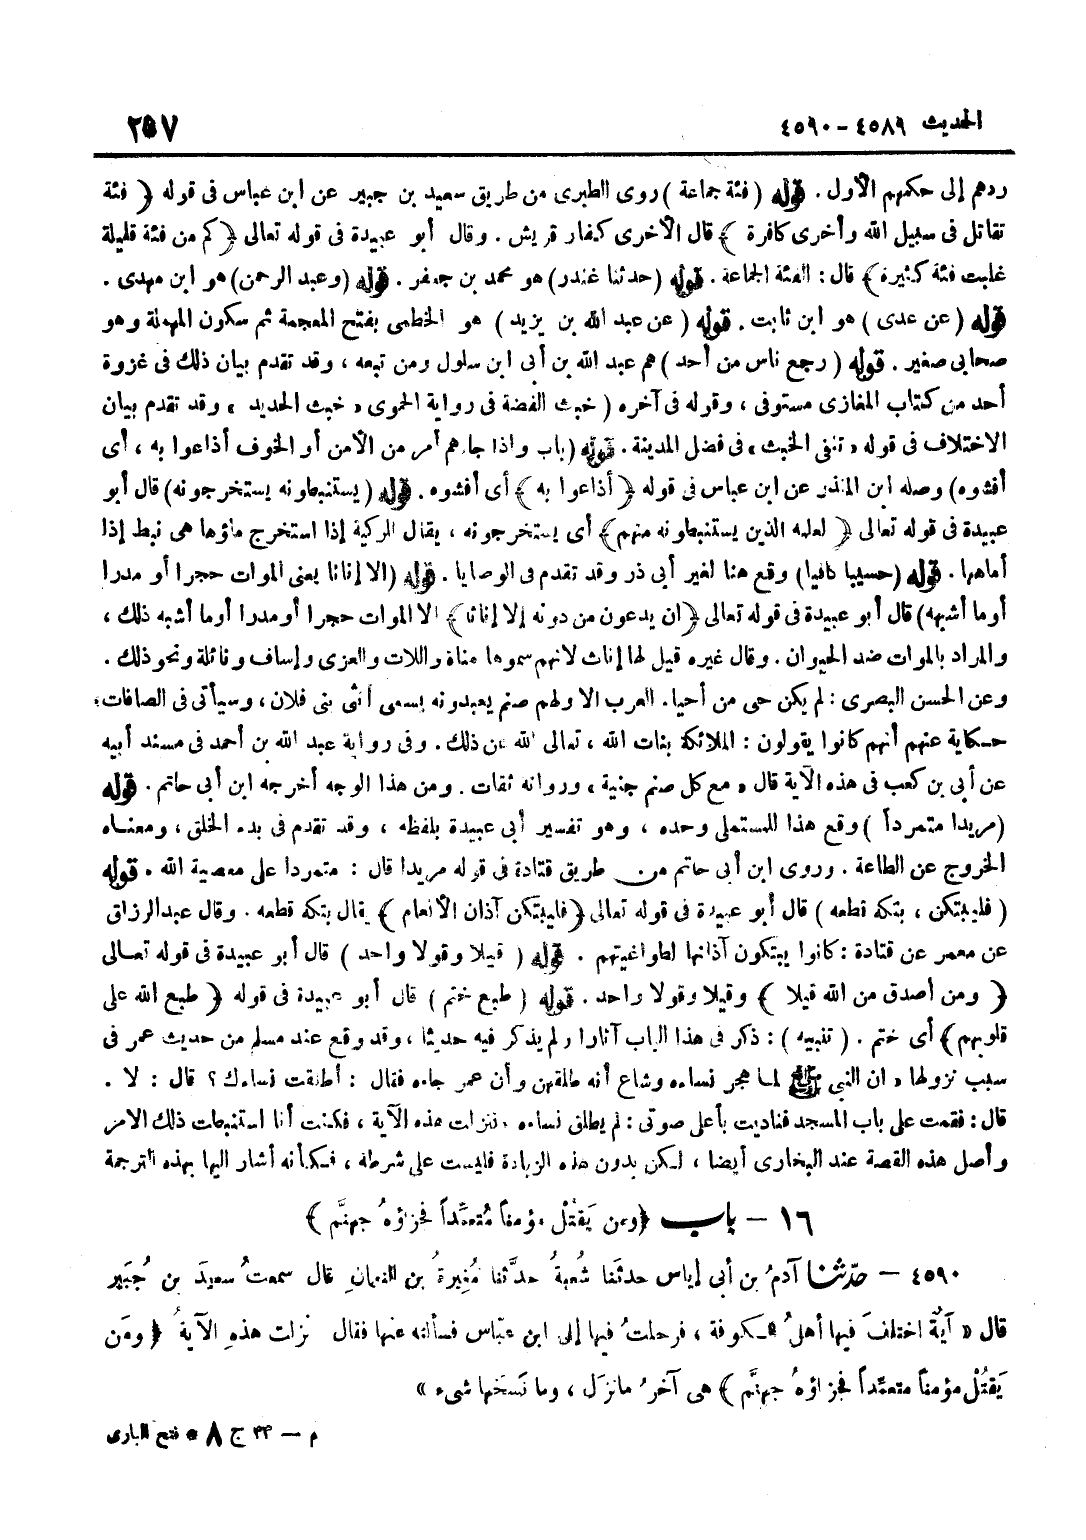 الحديث ٤٥٨٩ - ٤٥٩٠
٢٥٧
ردهم إلى حكمهم الأول . قوله ( فئة جماعة ) روى الطبرى من طريق سعيد بن جبير عن ابن عباس فى قوله ﴿ فئة
تقاتل فى سبيل الله وأخرى كافرة ﴾ قال الأخرى كفار قريش . وقال أبو عبيدة فى قوله تعالى ﴿ كم من فئة قليلة
غلبت فئة كثيرة ﴾ قال : الفئة الجماعة . قوله ( حدثنا غندر ) هو محمد بن جعفر . قوله ( وعبد الرحمن ) هو ابن مهدى .
قوله ( عن عدى ) هو ابن ثابت . قوله ( عن عبد الله بن يزيد ) هو الخطمى بفتح المعجمة ثم سكون المهملة وهو
صحابى صغير . قوله ( رجع ناس من أحد ) هم عبد الله بن أبى ابن سلول ومن تبعه ، وقد تقدم بيان ذلك فى غزوة
أحد من كتاب المغازى مستوفى ، وقوله فى آخره ( خبث الفضة فى رواية الحموى « خبث الحديد » وقد تقدم بيان
الاختلاف فى قوله « تنفى الخبث » فى فضل المدينة . قوله ( باب وإذا جاءهم أمر من الأمن أو الخوف أذاعوا به ، أى
أفشوه ) وصله ابن المنذر عن ابن عباس فى قوله ﴿ أذاعوا به ﴾ أى أفشوه . قوله ( يستنبطونه يستخرجونه ) قال أبو
عبيدة فى قوله تعالى ﴿ لعلمه الذين يستنبطونه منهم ﴾ أى يستخرجونه ، يقال الركية إذا استخرج ماؤها هى نبط إذا
أماهها . قوله ( حسيبا كافيا ) وقع هنا لغير أبى ذر وقد تقدم فى الوصايا . قوله ( الا إناثا يعنى الموات حجرا أو مدرا
أوما أشبهه ) قال أبو عبيدة فى قوله تعالى ﴿ ان يدعون من دونه إلا إناثا ﴾ الا الموات حجرا أو مدرا أوما أشبه ذلك ،
والمراد بالموات ضد الحيوان . وقال غيره قيل لها إناث لانهم سموها مناة واللات والعزى وإساف ونائلة ونحو ذلك .
وعن الحسن البصرى : لم يكن حى من أحياء العرب الا ولهم صنم يعبدونه يسمى أنثى بنى فلان ، وسيأتى فى الصافات
حكاية عنهم أنهم كانوا يقولون : الملائكة بنات الله ، تعالى الله عن ذلك . وفى رواية عبد الله بن أحمد فى مسند أبيه
عن أبى بن كعب فى هذه الآية قال « مع كل صنم جنية » ورواته ثقات . ومن هذا الوجه أخرجه ابن أبى حاتم . قوله
( مريدا متمرداً ) وقع هذا للمستملى وحده ، وهو تفسير أبى عبيدة بلفظه ، وقد تقدم فى بدء الخلق ، ومعناه
الخروج عن الطاعة . وروى ابن أبى حاتم من طريق قتادة فى قوله مريدا قال : متمردا على معصية الله . قوله
( فليبتكن ، بتكه قطعه ) قال أبو عبيدة فى قوله تعالى ﴿ فليبتكن آذان الأنعام ﴾ يقال بتكه قطعه . وقال عبدالرزاق
عن معمر عن قتادة : كانوا يبتكون آذانها لطواغيتهم . قوله ( قيلا وقولا واحد ) قال أبو عبيدة فى قوله تعالى
﴿ ومن أصدق من الله قيلا ﴾ وقيلا وقولا واحد . قوله ( طبع ختم ) قال أبو عبيدة فى قوله ﴿ طبع الله على
قلوبهم ﴾ أى ختم . ( تنبيه ) : ذكر فى هذا الباب آثارا ولم يذكر فيه حديثا ، وقد وقع عند مسلم من حديث عمر فى
سبب نزولها « ان النبى ﷺ لما هجر نساءه وشاع أنه طلقهن وأن عمر جاءه فقال : أطلقت نساءك ؟ قال : لا .
قال : فقمت على باب المسجد فناديت بأعلى صوتى : لم يطلق نساءه ، فنزلت هذه الآية ، فكنت أنا استنبطت ذلك الامر
وأصل هذه القصة عند البخارى أيضا ، لكن بدون هذه الزيادة فليست على شرطه ، فكأنه أشار اليها بهذه الترجمة
١٦ - باب ﴿ ومن يَقتُلْ مؤمناً مُتعمِّداً فجزاؤهُ جهنَّم ﴾
٤٥٩٠ - حدّثنا آدمُ بن أبى إياس حدثَنا شُعبةُ حدَّثنا مُغيرةُ بن النعمان قال سمعتُ سعيدَ بن جُبَير
قال « آيةٌ اختلفَ فيها أهلُ الكوفة ، فرحلتُ فيها إلى ابن عبّاس فسألته عنها فقال نزلت هذهِ الآيةُ ﴿ ومَن
يَقتُلْ مؤمناً متعمِّداً فجزاؤهُ جهنَّم ﴾ هى آخرُ مانزَل ، وما نَسَخها شىء »
م - ٣٣ ج ٨ * فتح البارى